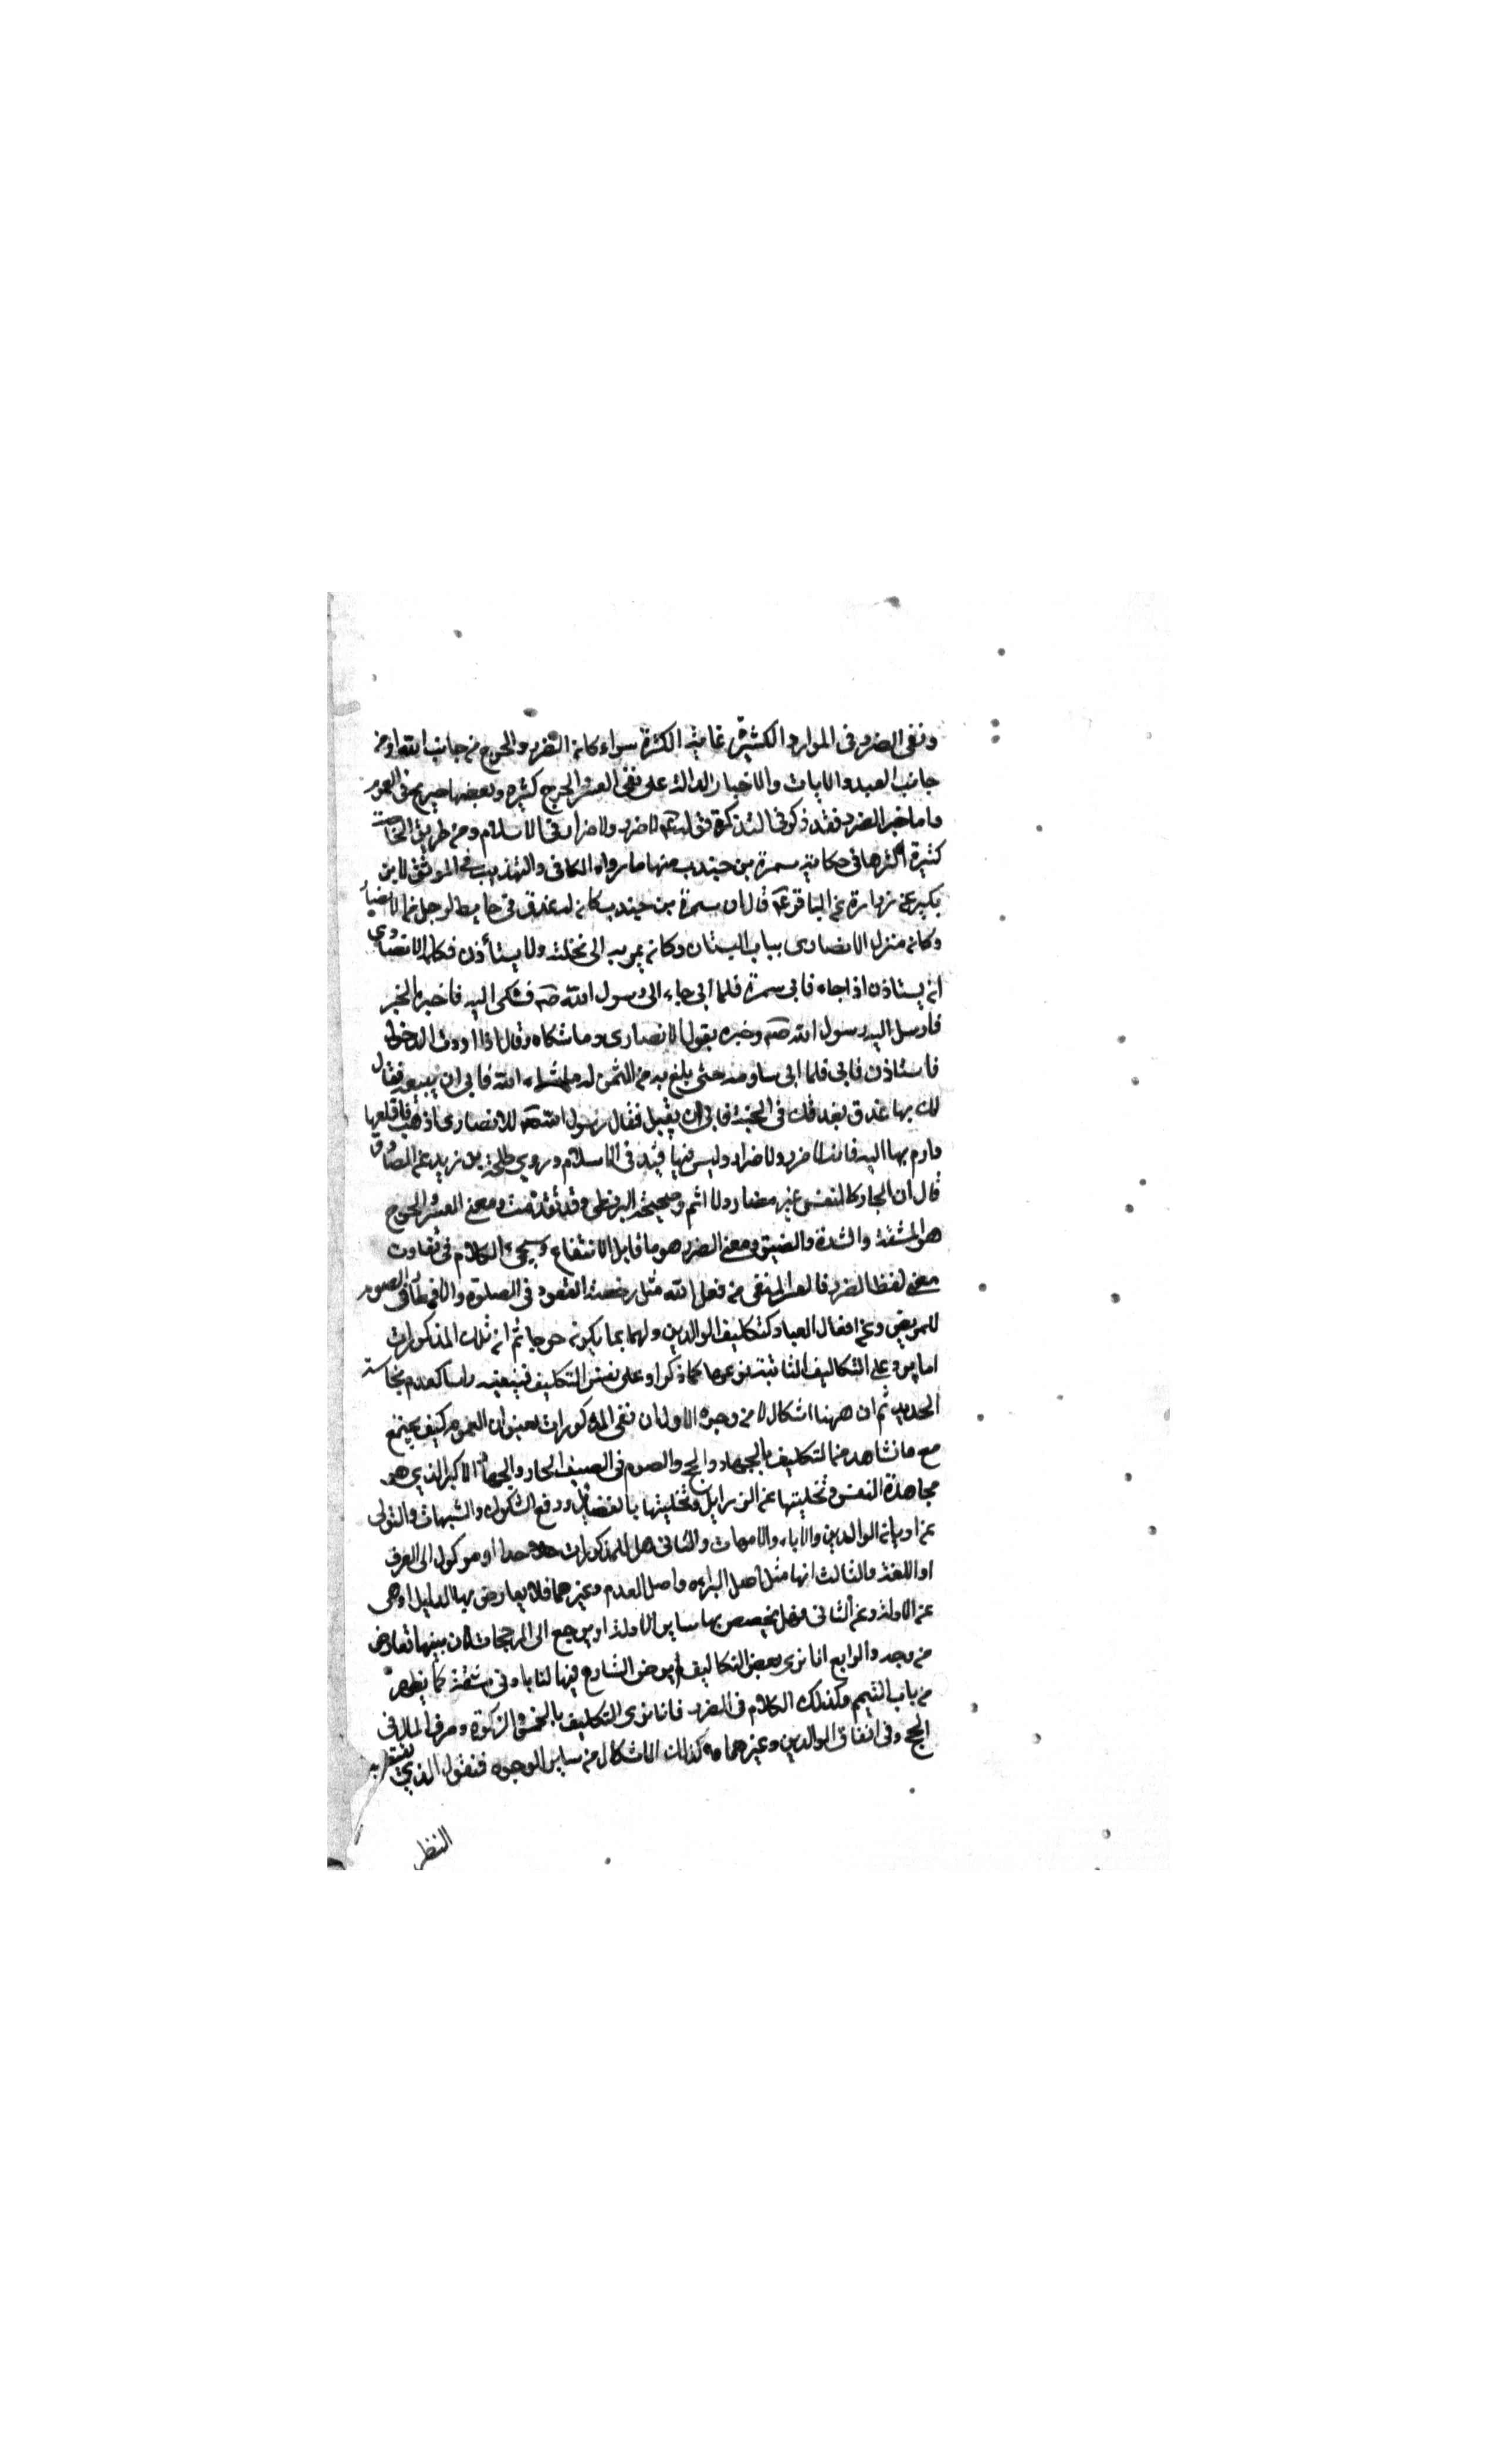 ونفى الضرر فى الموارد الكثيرة غاية الكثرة سواء كان الضرر والحرج من جانب الله او من
جانب العبد والايات والاخبار الدالة على نفى العسر والحرج كثيرة وبعضها صريح فى العموم
واما خبر الضرر فقد ذكر فى التذكرة قوله لا ضرر ولا ضرار فى الاسلام ومن طريق الخاصة
كثيرة اكثرها فى حكاية سمرة بن جندب منها ما رواه الكافى والتهذيب فى الموثق لابن
بكير عن زرارة عن الباقر ع قال ان سمرة بن جندب كان له عذق فى حايط لرجل من الانصار
وكان منزل الانصارى بباب البستان وكان يمر به الى نخلته ولا يستأذن فكلمه الانصارى
ان يستاذن اذا جاء فابى سمرة فلما ابى جاء الى رسول الله ص فشكى اليه فاخبره الخبر
فارسل اليه رسول الله ص وخبره بقول الانصارى وما شكاه وقال اذا اردت الدخول
فاستاذن فابى فلما ابى ساومه حتى بلغ به من الثمن له ما شاء الله فابى ان يبيعه فقال
لك بها عذق بعذقك فى الجنة فابى ان يقبل فقال رسول الله ص للانصارى اذهب فاقلعها
وارم بها اليه فانه لا ضرر ولا ضرار وليس فيها قيد فى الاسلام وروى طلحة بن زيد عن الصادق
قال ان الجار كالنفس غير مضار ولا اثم وصحيحة البزنطى وقد تقدمت ومعنى العسر والحرج
هو المشقة والشدة والضيق ومعنى الضرر هو ما قابل الانتفاع وسيجئ الكلام فى تفاوت
معنى لفظ الضرر فالعسر المنفى من فعل الله مثل رخصة القعود فى الصلوة والافطار فى الصوم
للمريض وعن افعال العباد كتكليف الوالدين ولهما بما يكون حرجا ثم ان تلك المذكورات
اما يرد على التكاليف الثابتة نوعها كما ذكر او على نفس التكليف فينفيه راسا كعدم نجاسة
الحديد ثم ان ههنا اشكالا من وجوه الاول ان نفى المذكورات بعنوان العموم كيف يجتمع
مع ما نشاهد من التكليف بالجهاد والحج والصوم فى الصيف الحار والجهاد الاكبر الذي هو
مجاهدة النفس وتخليتها عن الرزايل وتحليتها بالفضايل ودفع الشكوك والشبهات والتولى
عن اديان الوالدين والاباء والامهات والثانى هل للمذكورات حدا او موكول الى العرف
او اللغة والثالث انها مثل اصل البراءة واصل العدم وغيرهما فلا يعارض بها الدليل او هى
من الاولة وعن الثانى فهل يخصص بها ساير الاولة او يرجع الى المرجحات لان بينها تعارض
من وجه والرابع انا نرى بعض التكاليف لم يرض الشارع فيها لنا بادنى مشقة كما يظهر
من باب التيمم وكذلك الكلام فى الضرر فانا نرى التكليف بالخمس والزكوة وصرف المال فى
الحج وفى انفاق الوالدين وغيرهما وكذلك الاشكال من ساير الوجوه فنقول الذي يستقر به
النظر